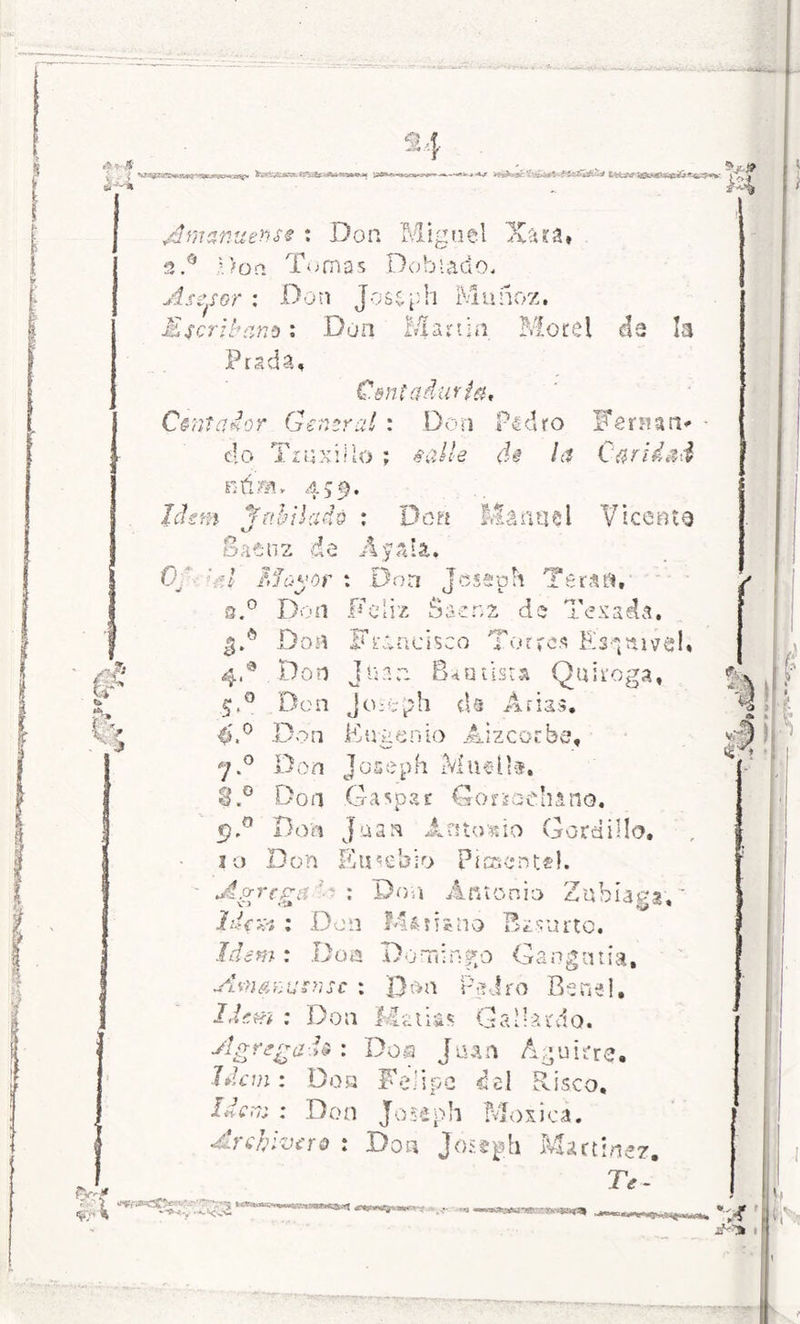 24
Amanuense : Don Miguel Xara,
2.º Don Tomas Doblado.
Asesor : Don Joseph Muñoz.
Escribano : Don Martin Morel de la
Prada,
Contaduría,
Contador General : Don Pedro Fernan-
do Truxillo ; calle de la Caridad
núm. 459.
Idem Jubilado : Don Manuel Vicente
Saenz de Ayala.
Oficial Mayor : Don Joseph Teran,
2.º Don Feliz Saenz de Texada,
3.º Don Francisco Torres Esquivel,
4.º Don Juan Bautista Quiroga,
5.º Don Joseph de Arias.
6.º Don Eugenio Aizcorbe,
7.º Don Joseph Muelle.
8.º Don Gaspar Gorrochano.
9.º Don Juan Antonio Gordillo.
10 Don Eusebio Pimentel.
Agregado : Don Antonio Zubiaga,
Idem : Don Mariano Basurto.
Idem : Don Domingo Gangutia,
Amanuense : Don Pedro Benel.
Idem : Don Matias Gallardo.
Agregado : Don Juan Aguirre.
Idem : Don Felipe del Risco,
Idem : Don Joseph Moxica.
Archivero : Don Joseph Martinez.
Te-